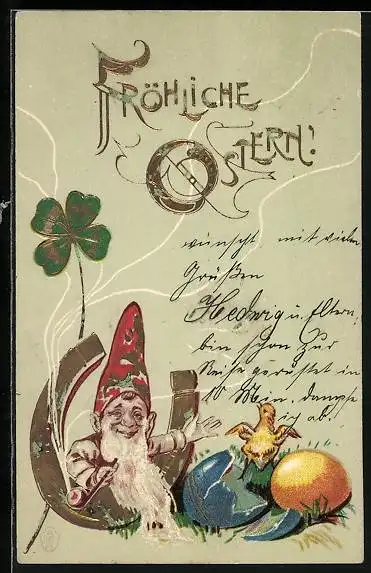 FRÖHLICHE
OSTERN!
wünscht mit vielen
Grüßen
Hedwig u. Eltern,
bin schon zur
Reise gerüstet in
10 Min. dampfe
ich ab.